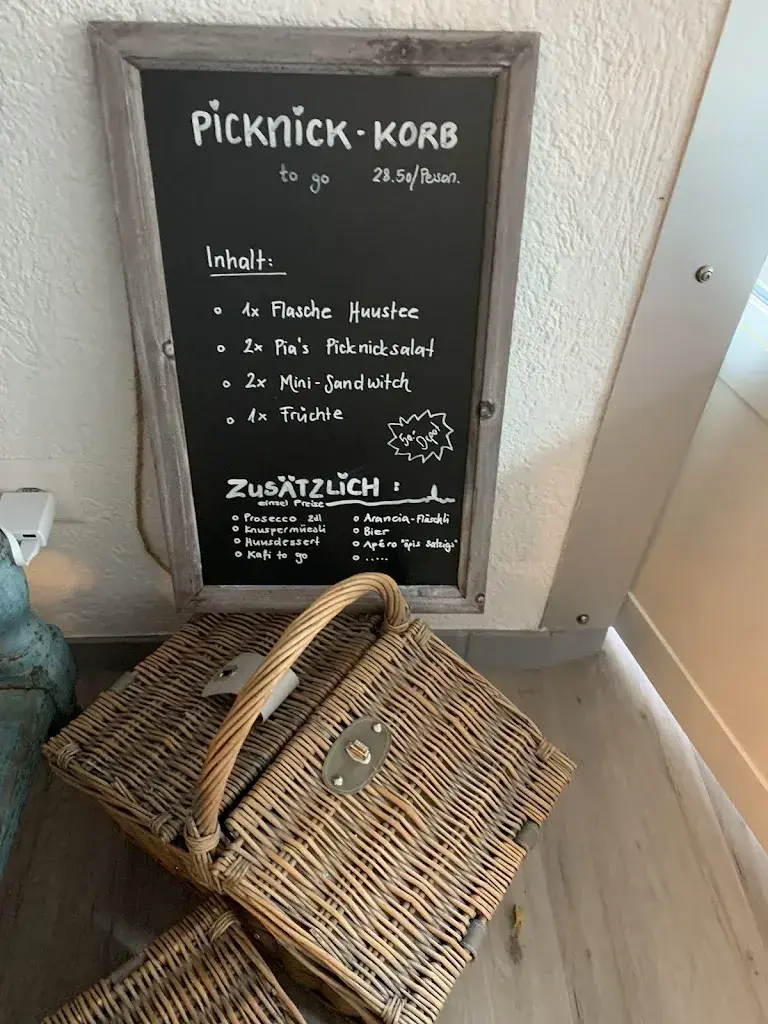 PICKNICK-KORB
to go 28.50/Person.
Inhalt:
1x Flasche Huustee
2x Pia's Picknicksalat
2x Mini-Sandwitch
1x Früchte
ZUSÄTZLICH:
einzel Preise
Prosecco 2dl
Knuspermüesli
Huusdessert
Kafi to go
Arancia-Fläschli
Bier
Apéro "öpis Salzigs"
.....